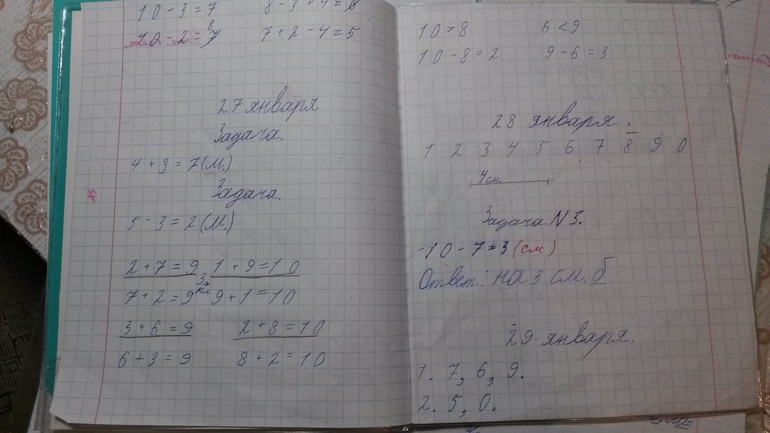 10-3=7 8-3+4=
10-2=8 7+2-4=5
27 января
Задача.
4+3=7(м.)
Задача.
5-3=2(м.)
2+7=9 1+9=10
3
кл
7+2=9 9+1=10
3+6=9 2+8=10
6+3=9 8+2=10
10>8 6<9
10-8=2 9-6=3
28 января.
1 2 3 4 5 6 7 8 9 0
4см
Задача N3.
10-7=3(см)
Ответ: на 3 см. б
29 января.
1. 7, 6, 9.
2. 5, 0.